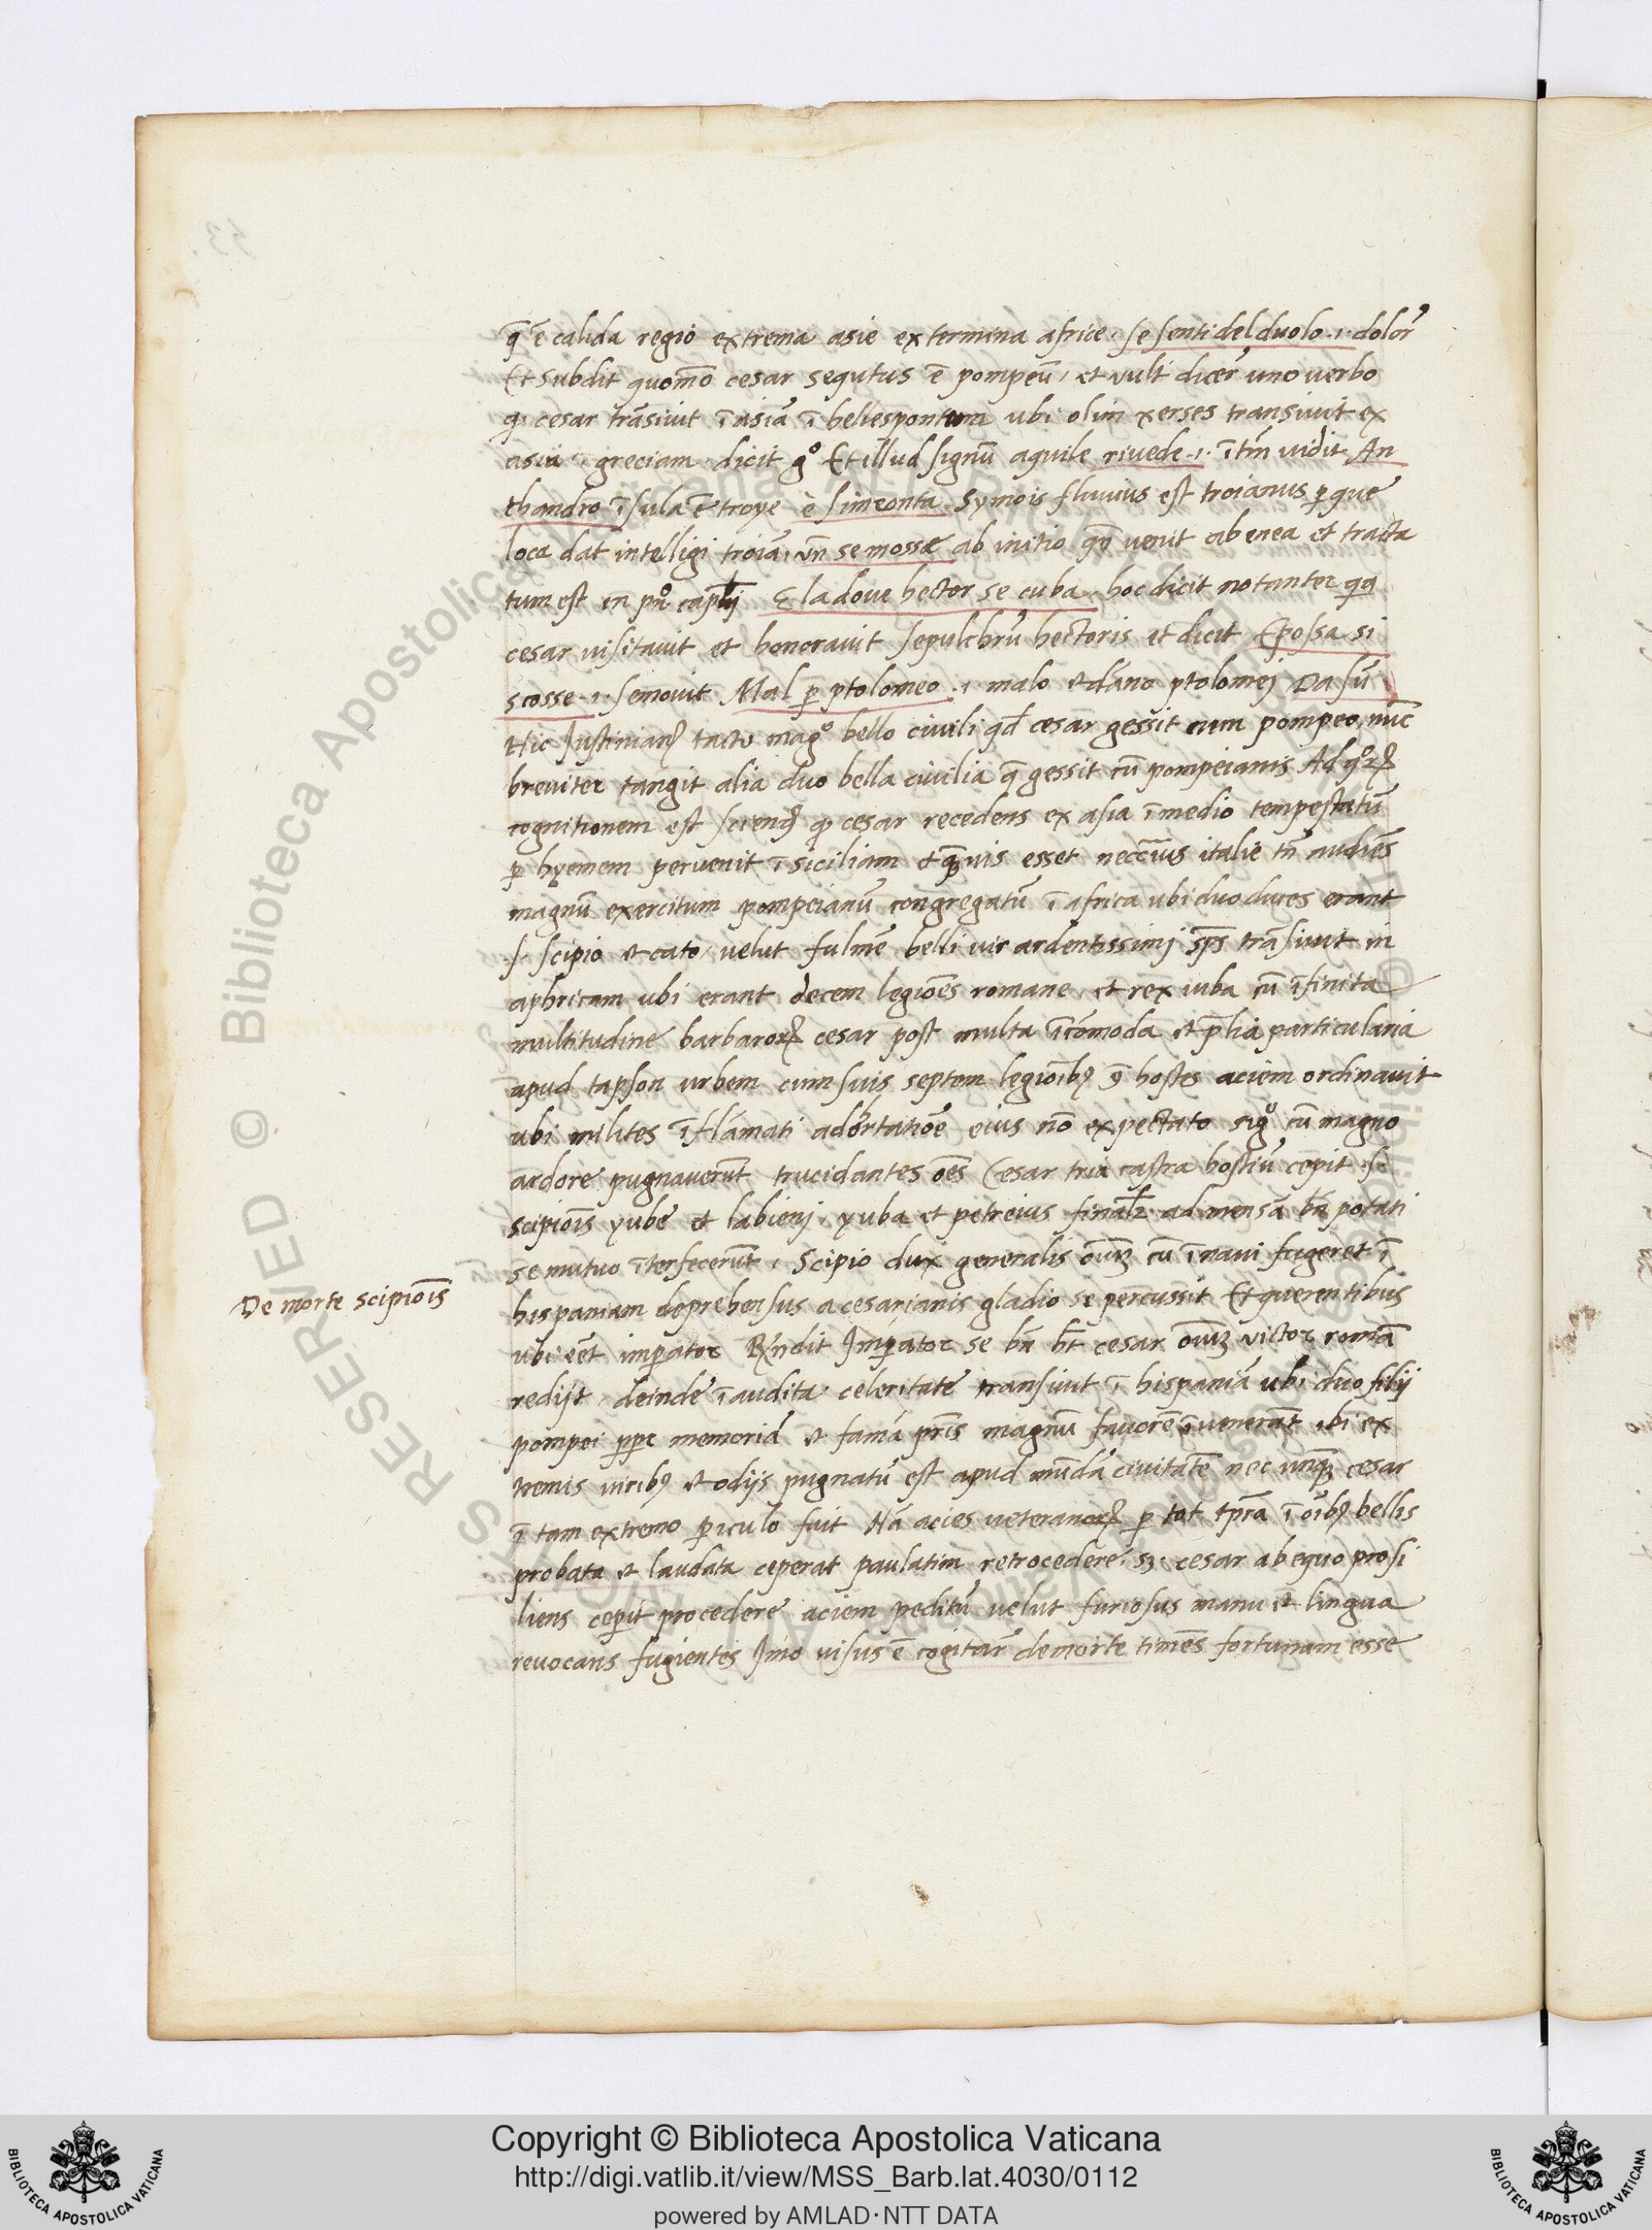 q̄ ē calida regio extrema asie ex termina africe. se senti del duolo .i. dolor̄
Et subdit quomō cesar sequtus ē pompeū, et vult dicer̄ uno verbo
q. cesar trāsivit ī asiā ī hellespontum ubi olim xerses transivit ex
asia ī greciam dicit gͦ Et illud signū aquile rivede .i. itm̄ vidit An
thandro īsula ē troye è simeonta Symois fluvius est troianus p que
loca dat intelligi troiā, vn̄ se mosse ab initio qn̄ venit ab enea et tracta
tum est in pͦ Et la dove hector se cuba. hoc dicit notanter qq
cesar visitavit et honoravit sepulchrū hectoris et dicit E possa si
scosse .i. se movit Mal p ptolomeo .i. malo et dāno ptolomej Da sū
Hic Justinianꝯ tacto magͦ bello civili qd cesar gessit cum pompeo, nūc
breviter tangit alia duo bella civilia q̄ gessit cū pompeianis Ad qͦꝝ
cognitionem est sciendꝯ ꝙ cesar recedens ex asia ī medio tempestatū
p hyemem pervenit ī siciliam et quis esset neccīus italie tn̄ audiēs
magnū exercitum pompeianū congregatū ī africa ubi duo duces erant
.s. scipio et cato, velut fulmē belli vir ardentissimj sps̄ trāsivit in
aphricam ubi erant decem legiōes romane, et rex iuba cū īfinita
multitudine barbaroꝝ cesar post multa īcōmoda et p̄lia particularia
apud tapson urbem cum suis septem legiōibꝯ ꝯ̄ hostes aciem ordinavit
ubi milites īflāmati adhortatiōe eius nō expectato sigͦ cū magno
ardore pugnaverūt trucidantes oēs Cesar tria castra hostiū cepit .s.
scipiōis yube et labienj. yuba et petreius finalr̄ ad mensā bn̄ potati
se mutuo īterfecerūt. Scipio dux generalis oīuꝫ cū ī navi fugeret ī
De morte scipiōis
hispaniam deprehensus a cesarianis gladio se percussit Et querentibus
ubi eēt imperator Rn̄dit Imperator se bn̄ ht̄ cesar oīuꝫ victor romā
redijt deinde īaudita celeritate transivit ī hispaniā ubi duo filij
pompei pp̄ memoriā et famā pr̄is magnū favorē īvenerāt ibi ex
tremis viribꝯ et odijs pugnatū est apud mūdā civitatē nec unqꝫ cesar
ī tam extremo periculo fuit Nā acies veteranoꝝ p tot tp̄ra ī oībꝯ bellis
probata et laudata ceperat paulatim retrocedere. sꝫ cesar ab equo prosi
liens cepit procedere aciem peditū velut furiosus manu et lingua
revocans fugientes Imo visus ē cogitar̄ de morte timēs fortunam esse
Copyright © Biblioteca Apostolica Vaticana
http://digi.vatlib.it/view/MSS_Barb.lat.4030/0112
powered by AMLAD·NTT DATA
BIBLIOTECA APOSTOLICA VATICANA
BIBLIOTECA APOSTOLICA VATICANA